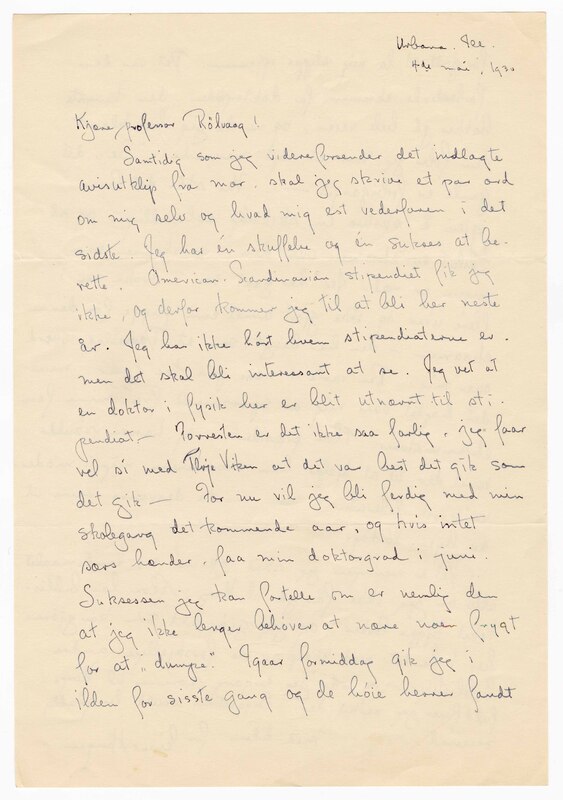 Urbana. Ill.
4de mai, 1930
Kjære professor Rölvaag!
Samtidig som jeg videreforsender det indlagte
avisutklip fra mor. skal jeg skrive et par ord
om mig selv og hvad mig est vederfaren i det
sidste. Jeg har én skuffelse og én sukses at be-
rette. American-Scandinavian stipendiet fik jeg
ikke, og derfor kommer jeg til at bli her neste
år. Jeg har ikke hört hvem stipendiaterne er.
men det skal bli interessant at se. Jeg vet at
en doktor i fysik her er blit utnævnt til sti-
pendiat— Forresten er det ikke saa farlig, jeg faar
vel si med Terje Viken at det var best det gik som
det gik— For nu vil jeg bli ferdig med min
skolegang det kommende aar, og hvis intet
særs hænder. faa min doktorgrad i juni.
Suksessen jeg kan fortelle om er nemlig den
at jeg ikke lenger behöver at nære noen frygt
for at „dumpe". Igaar formiddag gik jeg i
ilden for sisste gang og de höie herrer fandt